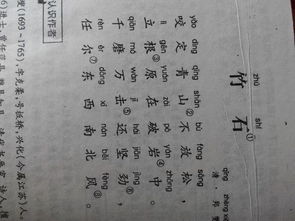 zhú shí
竹石①
qīng zhèng xiè
清·郑燮
yǎo dìng qīng shān bù fàng sōng
咬定青山②不放松,
lì gēn yuán zài pò yán zhōng
立根③原在破岩④中。
qiān mó wàn jī hái jiān jìng
千磨万击⑤还坚劲⑥,
rèn ěr dōng xī nán běi fēng
任尔⑦东西南北风⑧。
认识作者
燮(1693~1765),字克柔,号板桥,兴化(今属江苏)人。
6)进士,曾任范县、潍县知县